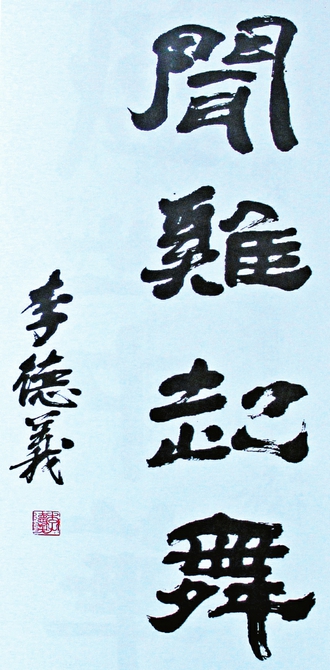 聞雞起舞
李德義